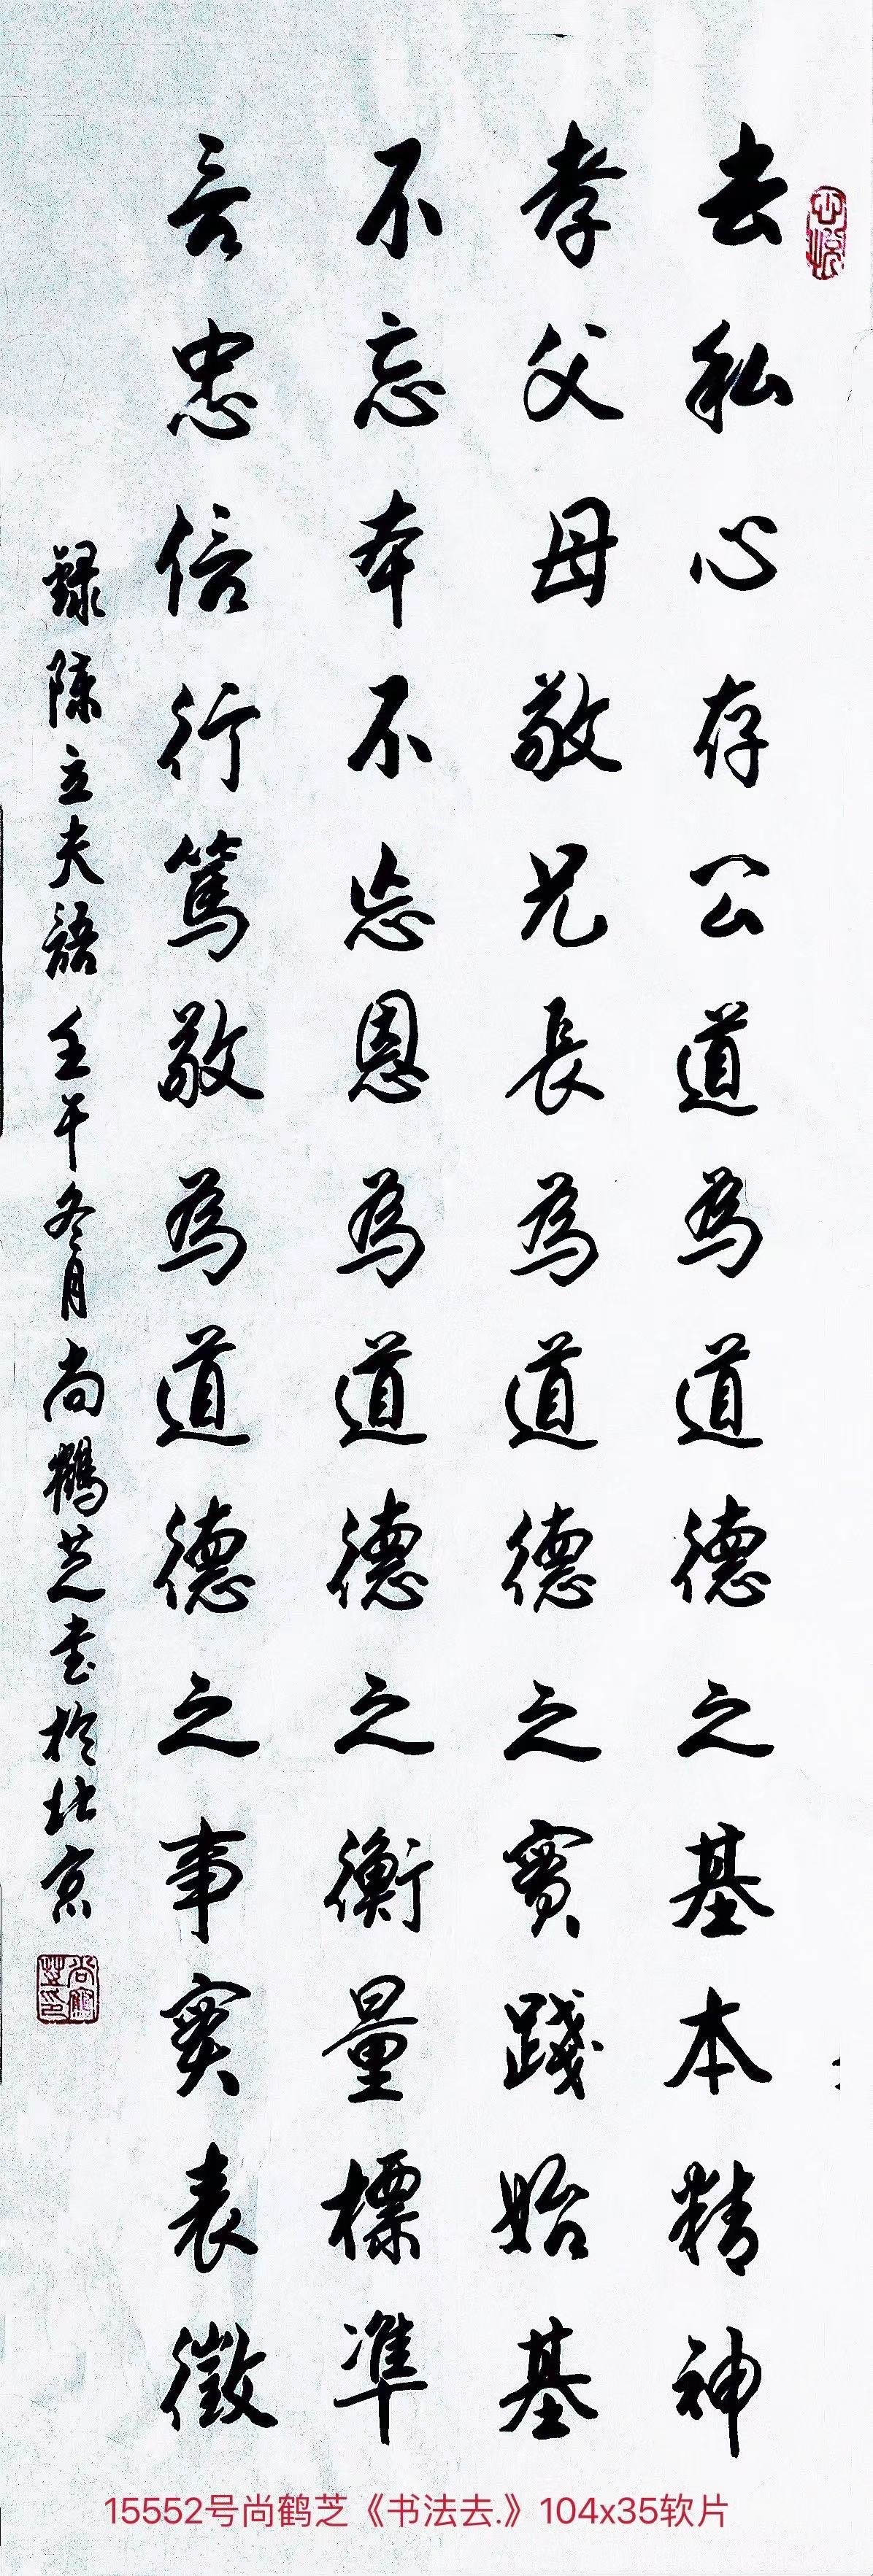 去私心存公道為道德之基本精神
孝父母敬兄長為道德之實踐始基
不忘本不忘恩為道德之衡量標準
言忠信行篤敬為道德之事实表徵
録陳立夫語壬午冬月尚鶴芝书於北京
尚鶴芝印
15552号尚鹤芝《书法去.》104x35软片